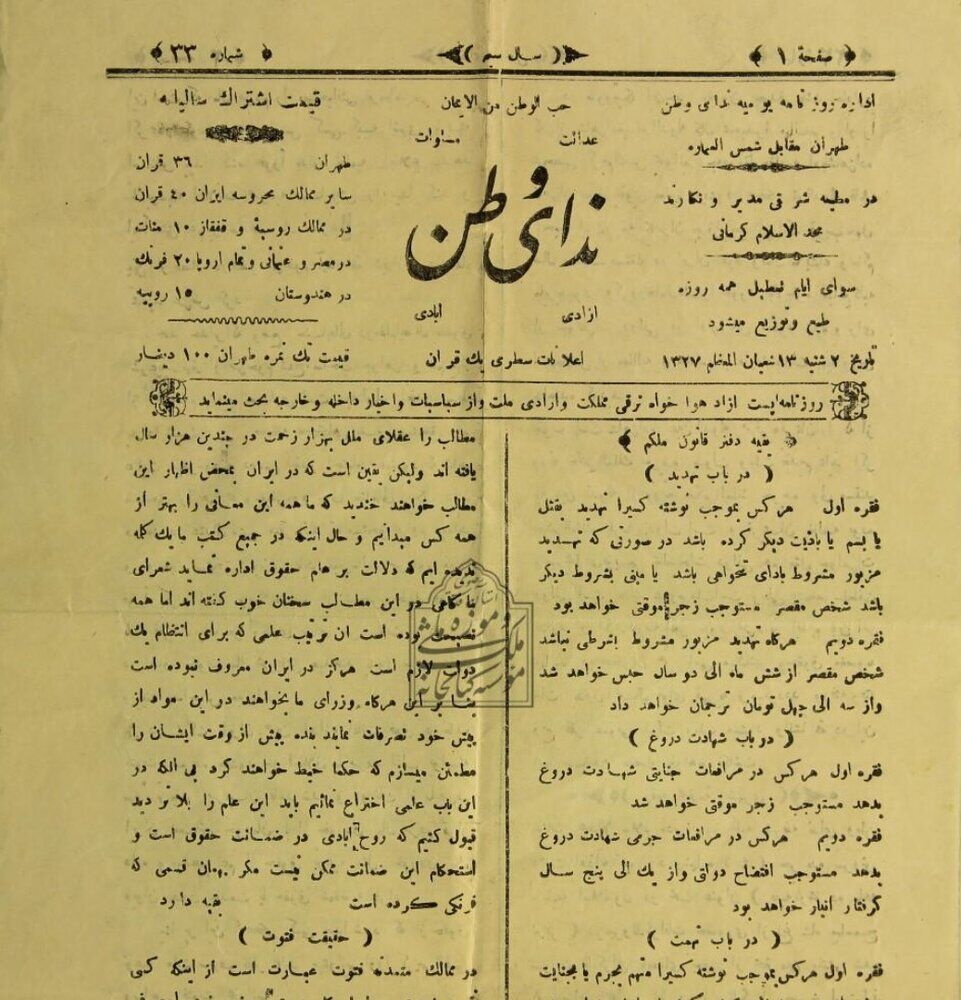 صفحهٔ ۱
سال سیم
شماره ۳۳
اداره روزنامه یومیه ندای وطن
طهران مقابل شمس العماره
در مطبعه شرقی مدیر و نگارنده
مجد الاسلام کرمانی
سوای ایام تعطیل همه روزه
طبع و توزیع میشود
بتاریخ ۲ شنبه ۱۳ شعبان المعظم ۱۳۲۷
حب الوطن من الایمان
عدالت مساوات
ندای وطن
ازادی ابادی
اعلانات سطری یک قران
قیمت اشتراک سالیانه
طهران ۳۶ قران
سایر ممالک محروسه ایران ۴۰ قران
در ممالک روسیهٔ و قفقاز ۱۰ منات
در مصر و عثمانی و تمام اروپا ۲۰ فرنک
در هندوستان ۱۵ روپیه
قیمت تک نمره طهران ۱۰۰ دینار
روزنامه ایست ازاد هوا خواه ترقی مملکت و ارادی ملت و از سیاسیات و اخبار داخله و خارجه بحث مینماید
بقیه دفتر قانون ملکم
( در باب تهدید )
فقره اول هرکس بموجب نوشته کسیرا تهدید بقتل
یا بسم یا باذیت دیگر کرده باشد در صورتی که تهدید
مزبور مشروط بادای تنخواهی باشد یا مبنی بشروط دیگر
باشد شخص مقصر مستوجب زجر موقتی خواهد بود
فقره دویم هرکاه تهدید مزبور مشروط بشرطی نباشد
شخص مقصر از شش ماه الی دو سال حبس خواهد شد
واز سه الی چهل تومان ترجمان خواهد داد
( در باب شهادت دروغ )
فقره اول هرکس در مرافعات جنایتی شهادت دروغ
بدهد مستوجب زجر موقتی خواهد شد
فقره دویم هرکس در مرافعات جرمی شهادت دروغ
بدهد مستوجب افتضاح دولتی واز یک الی پنج سال
کرفتار انبار خواهد بود
( در باب تهمت )
فقره اول هرکس بموجب نوشته کسیرا متهم بجرم یا بجنایت
مطالب را عقلای ملل بهزار زحمت در چندین هزار سال
یافته اند ولیکن یقین است که در ایران بمحض اظهار این
مطالب خواهند خندید که ما همه این معانی را بهتر از
همه کس میدانیم و حال اینکه در جمیع کتب ما یک کله
ندیده ایم که دلالت بر علم حقوق اداره نماید شعرای
ما کاهی در این مطالب سخنان خوب کفته اند اما همه
نصیحت بوده است ان ترتیب علمی که برای انتظام یک
دولت لازم است هرکز در ایران معروف نبوده است
بنا بر این هرکاه وزرای ما بخواهند در این مواد از
پیش خود تصرفات نمایند بنده پیش از وقت ایشان را
مطمئن میسازم که حکما خبط خواهند کرد بی انکه در
این باب علمی اختراع نمائیم باید این علم را بلا تردید
قبول کنیم که روح ابادی در ضمانت حقوق است و
استحکام این ضمانت ممکن نیست مکر بهمان قسمی که
فرنکی کرده است بقیه دارد
( حقیقت فتوت )
در ممالک متمدنه فتوت عبارت است از اینکه کسی